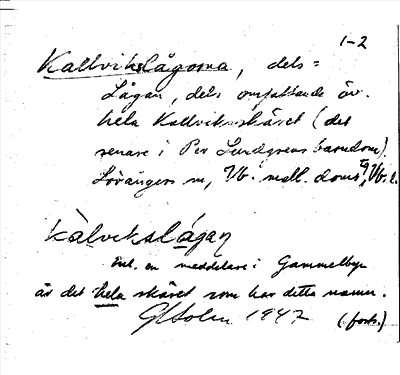 1-2
Kallvikslågorna, dels =
Lågan, dels omfattande äv.
hela Kallviksskäret (det
senare i Per Lundgrens barndom).
Lövångers sn, Vb. mell. doms
Kàlvikslågan
Enl. en meddelare i Gammelbyn
är det hela skäret som har detta namn.
G Holm 1947 (forts.)